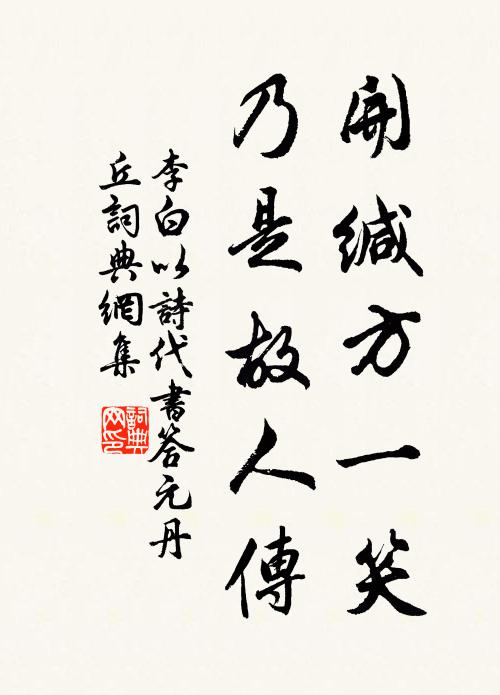 開緘方一笑
乃是故人傳
李白以詩代書答元丹
丘詞典網集
詞典
网印